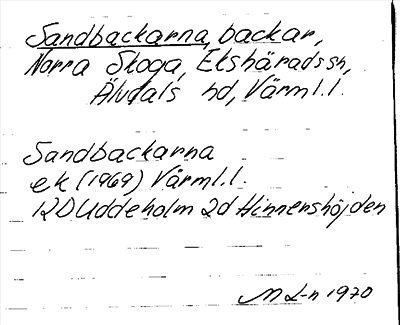 Sandbackarna, backar,
Norra Skoga, Ekshärads sn,
Älvdals hd, Värml.l.
Sandbackarna
ek (1969) Värml.l.
12D Uddeholm 2d Hinnershöjden
M L-n 1970